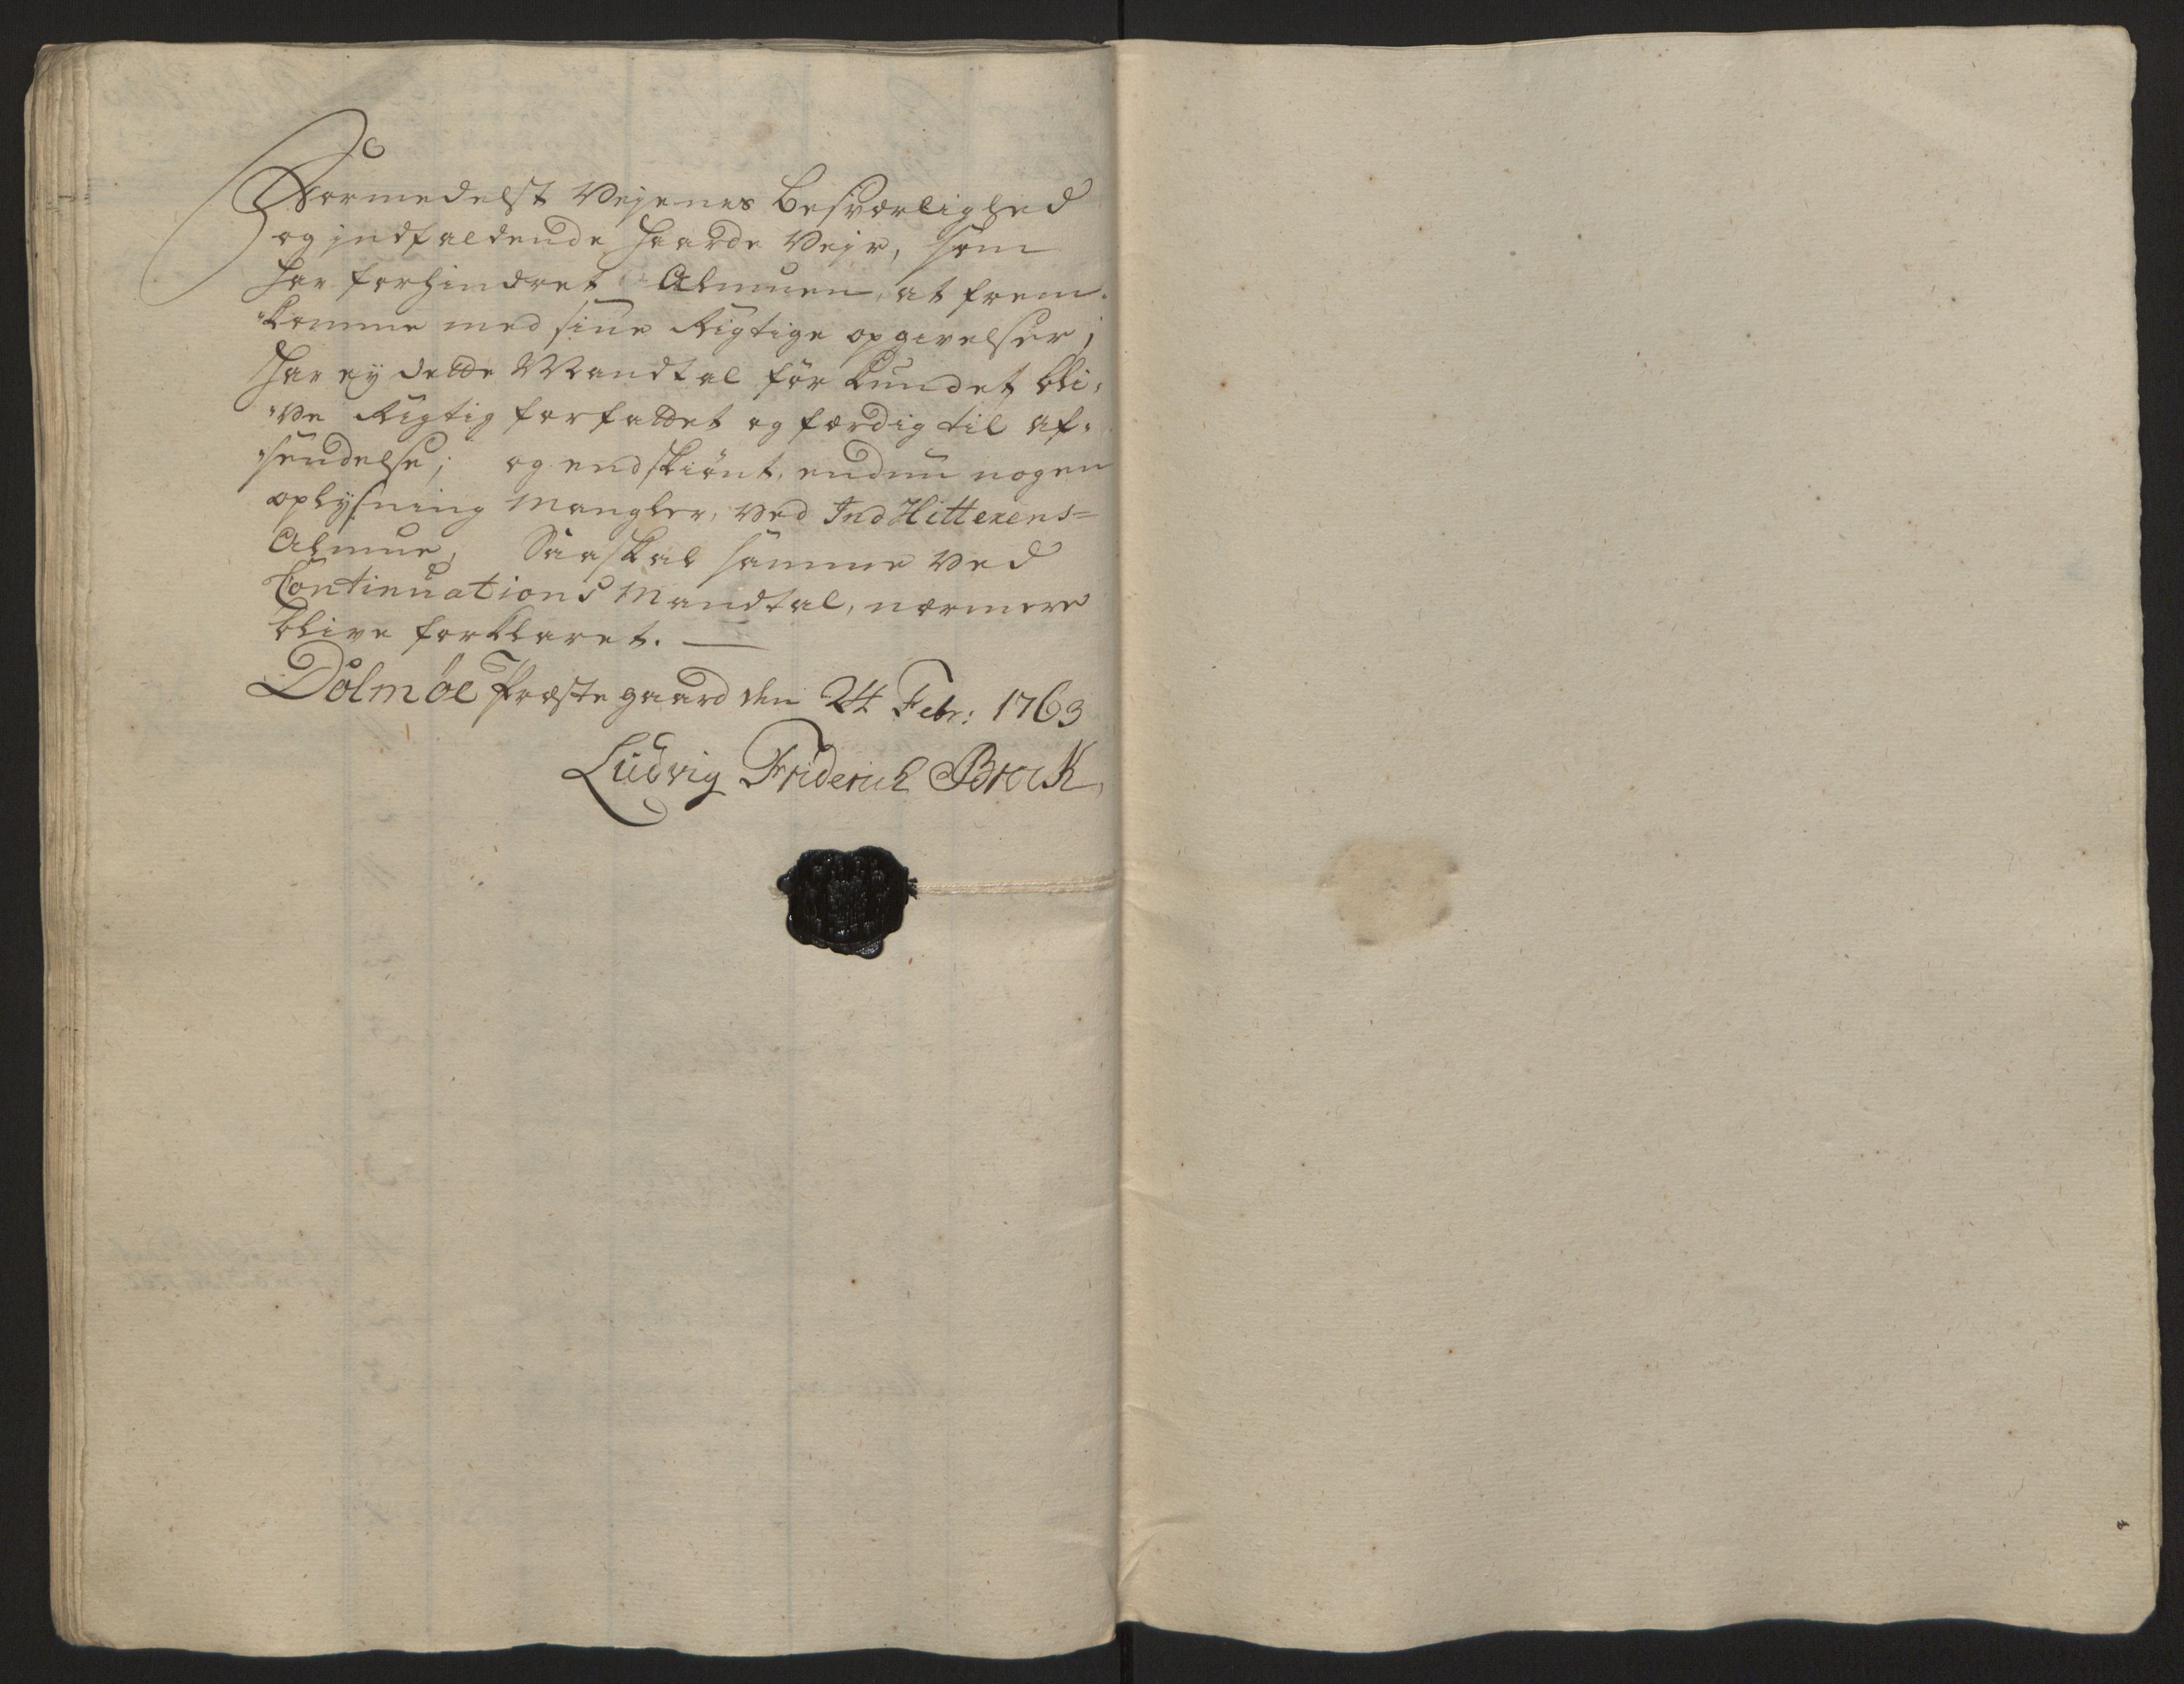 Formedelst Vejenes Besværlighed
og indfaldende haarde Vejr, som
har forhindret Almuen, at frem-
"komme med sine Rigtige opgivelser;
Har ey dette Mandtal før kundet bli-
"ve Rigtig forfattet og færdig til af-
"sendelse; og endskiönt, endnu nogen
oplysning Mangler, ved Ind Hitterens=
Almue, Saa skal samme ved
Continuations Mandtal, nærmere
blive forklaret. —
Dolmöe Præstegaard den 24 Febr: 1763
Ludvig Friderich Brock